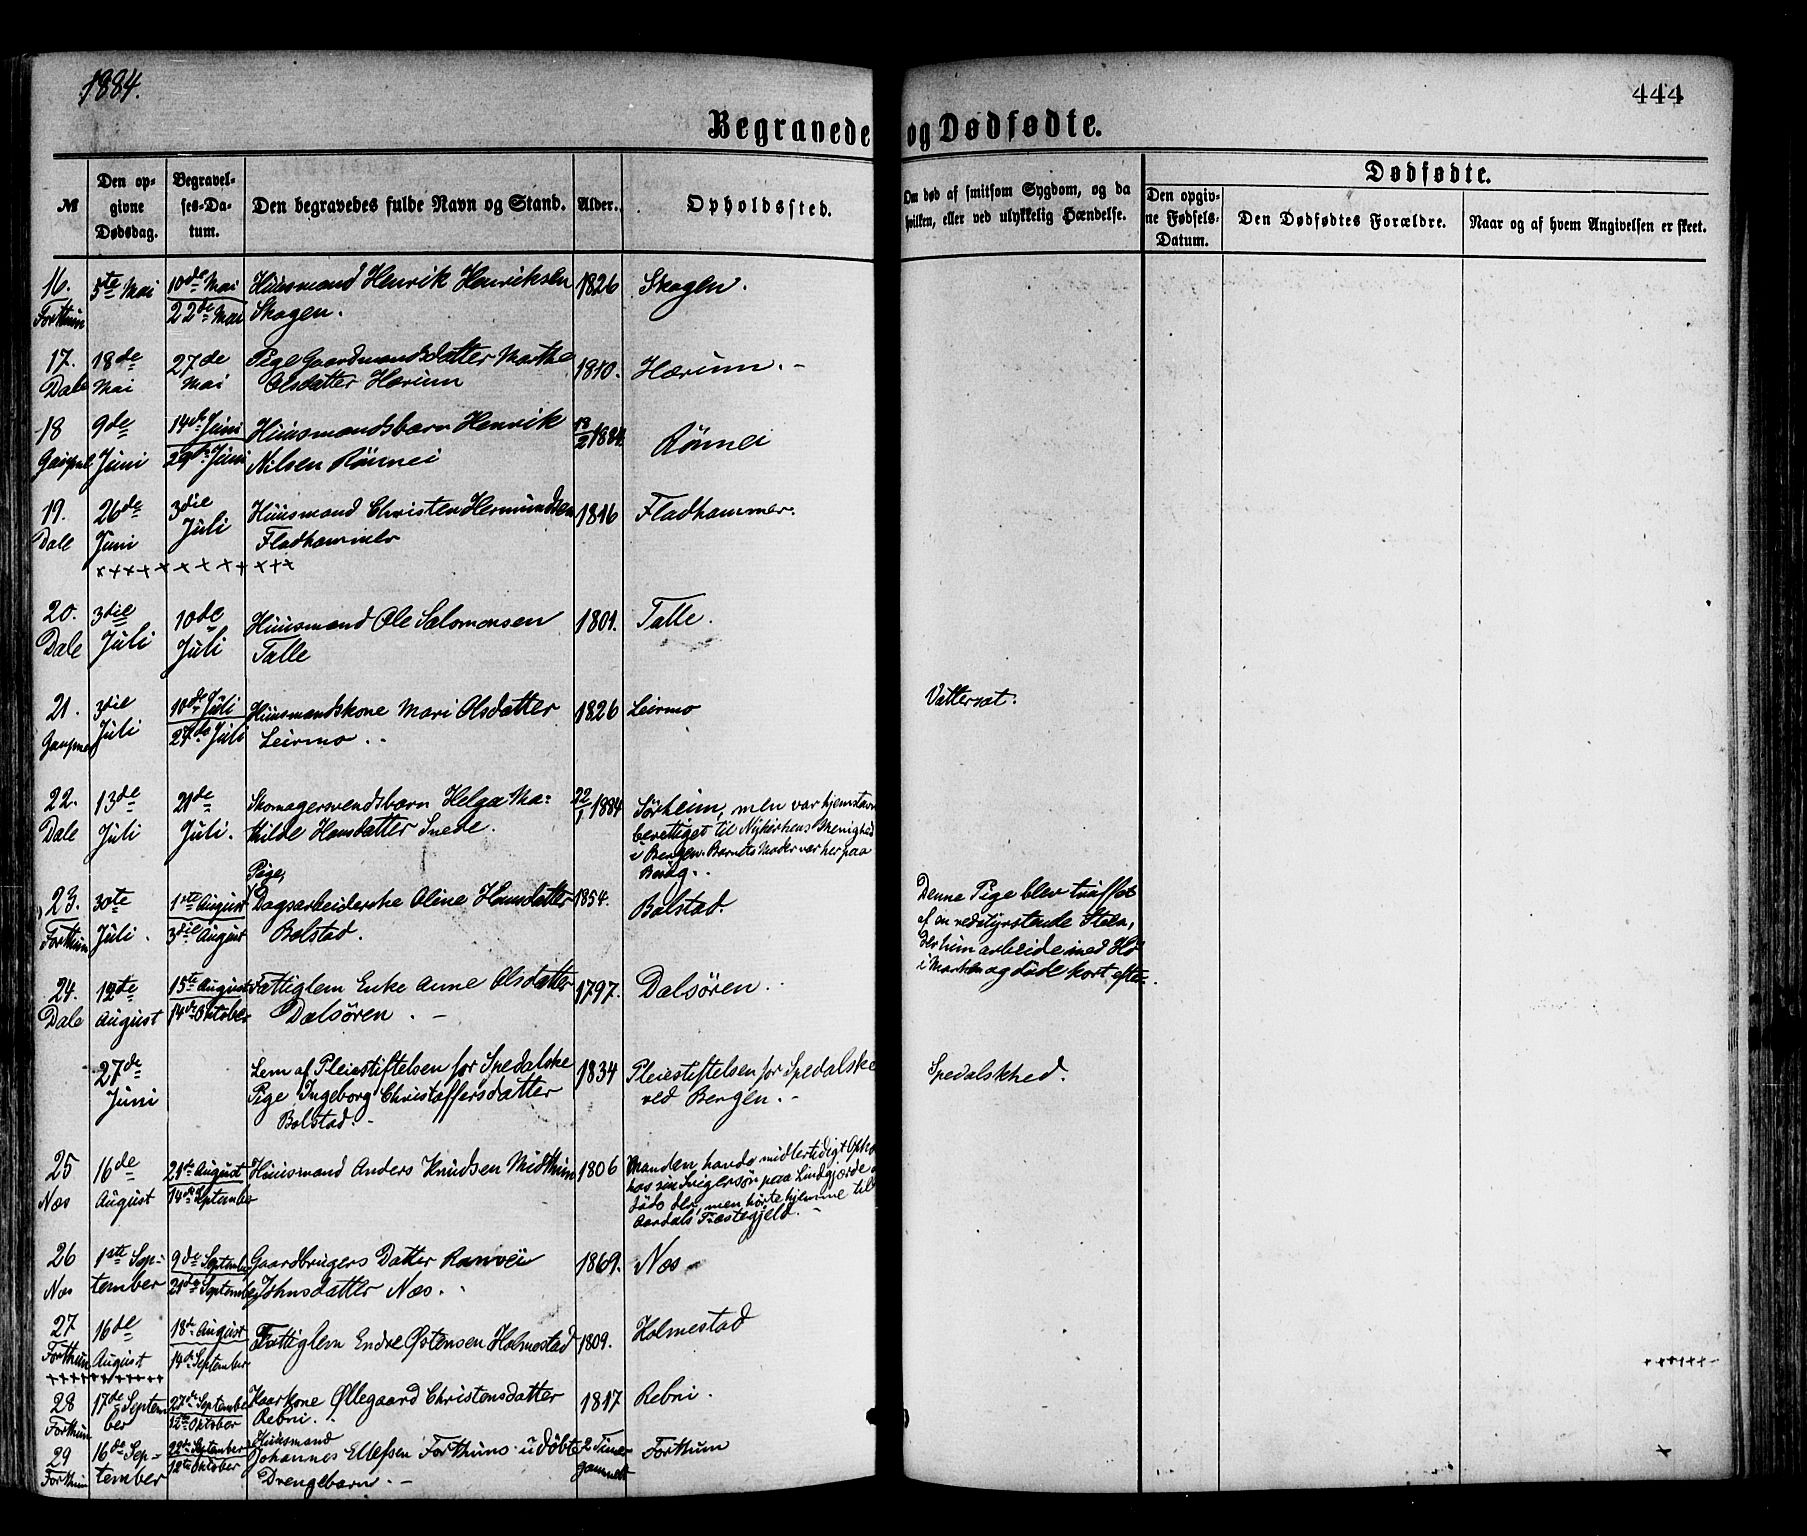 1884.
444
Begravede og Dødfødte.
№
Den op-
givne
Dødsdag.
Begravel-
ses-Da-
tum.
Den begravedes fulde Navn og Stand.
Alder.
Opholdssted.
Om død af smitsom Sygdom, og da
hvilken, eller ved ulykkelig Hændelse.
Dødfødte.
Den opgiv-
ne Fødsels-
Datum.
Den Dødfødtes Forældre.
Naar og af hvem Angivelsen er skeet.
16. 5te Mai 10de Mai Huusmand Henrik Henriksen 1826 Skagen.
Forthun 22de Mai Skagen.
17. 18de 27de Pige Gaardmandsdatter Marthe 1810. Hærum.
Dale Mai Mai Olsdatter Hærum
18 9de 14de Juni Huusmandsbarn Henrik 18/2 1884. Rönnei
Gaupne Juni 29de Juni Nilsen Rönnei
19. 26de 3die Huusmand Christen Hermundsen 1816 Fladhammer.
Dale Juni Juli Fladhammer
×××××××××××
20. 3die 10de Huusmand Ole Salomonsen 1801. Talle.
Dale Juli Juli Talle
21. 3die 10de Juli Huusmandskone Mari Olsdatter 1826 Leirmo Vattersot.
Gaupne Juli 27de Juli Leirmo
22. 13de 21de Skomagersvendsbarn Helga Ma- 22/1 1884 Sørheim, men var hjemstavns
Dale Juli Juli. thilde Hansdatter Snede. berettiget til Nykirkens Menighed
i Bergen. Barnets Moder var her paa
Besøg.
Pige,
23. 30te 1ste August Dagsarbeiderske Oline Hansdatter 1854. Bolstad.
Forthun Juli. 3die August Bolstad.
Denne Pige blev truffet
af en nedstyrtende Steen,
der hun arbeidede med Hö
i Marken og døde kort efter.
24. 12te 15te August Fattiglem Enke Anne Olsdatter 1797. Dalsören.
Dale August 14de Oktober Dalsören.
27de Lem af Pleiestiftelsen for Spedalske 1834 Pleiestiftelsen for Spedalske Spedalskhed.
Juni Pige Ingeborg Christoffersdatter ved Bergen.
Bolstad.
25 16de 21de August Huusmand Anders Knudsen Midthun 1806 Manden havde midlertidigt Opho
Næs August 14de September hos sin Svigersön paa Lindgjerde
döde der, men hörte hjemme til
Aardals Præstegjeld.
26 1ste Sep- 9de September Gaardbrugers Datter Ranvei 1869. Næs
Næs tember 21de September Johnsdatter Næs.
27 16de 18de August Fattiglem Endre Østensen Holmestad 1809. Holmestad
Forthun August 14de September
×××××××××× ××××××
28 17de Septem 27de September Kaarkone Øllegaard Christensdatter 1817 Rebni.
Forthun ber 12te Oktober Rebni.
29 16de Sep- 22de September Huusmand
Johannes Ellefsen Forthuns udøbte 2 Timer Forthun
Forthun tember 12te Oktober Drengebarn. gammelt